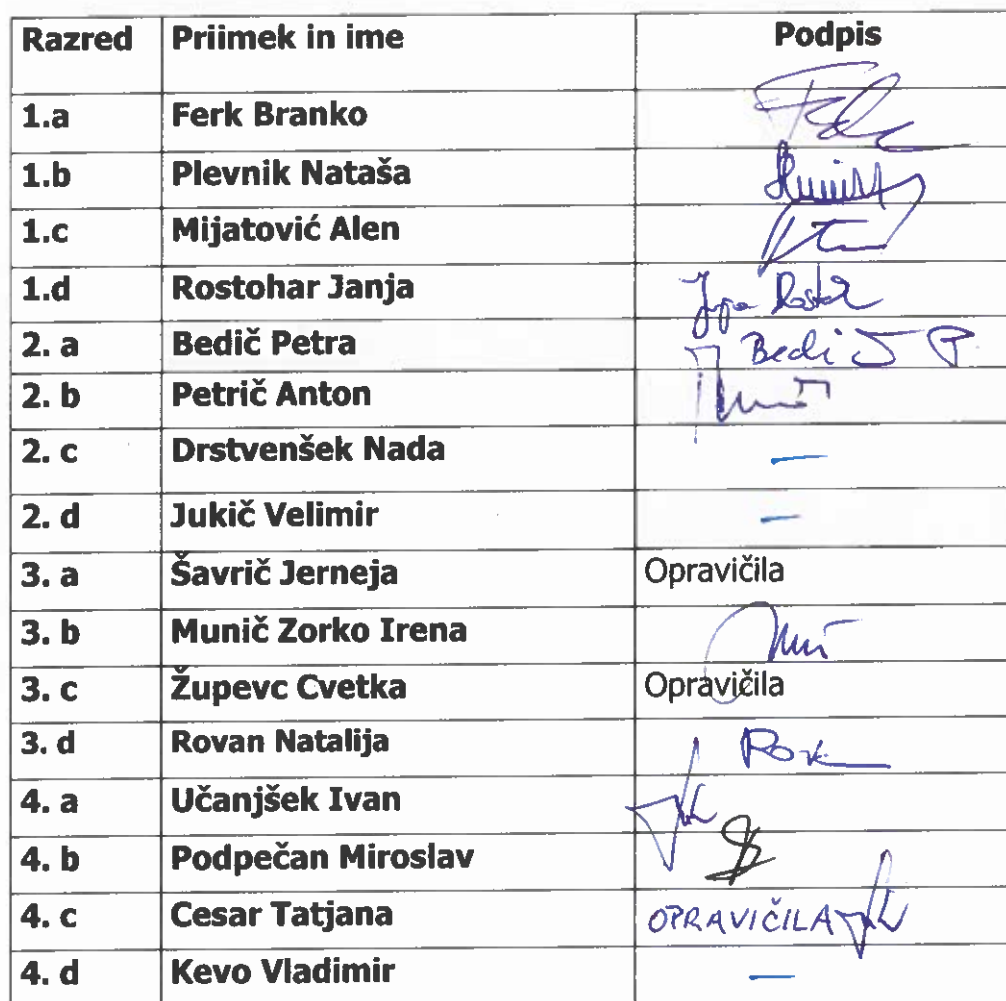 Razred Priimek in ime Podpis
1.a Ferk Branko
1.b Plevnik Nataša
1.c Mijatović Alen
1.d Rostohar Janja
2. a Bedič Petra
2. b Petrič Anton
2. c Drstvenšek Nada —
2. d Jukič Velimir —
3. a Šavrič Jerneja Opravičila
3. b Munič Zorko Irena
3. c Župevc Cvetka Opravičila
3. d Rovan Natalija
4. a Učanjšek Ivan
4. b Podpečan Miroslav
4. c Cesar Tatjana OPRAVIČILA
4. d Kevo Vladimir —